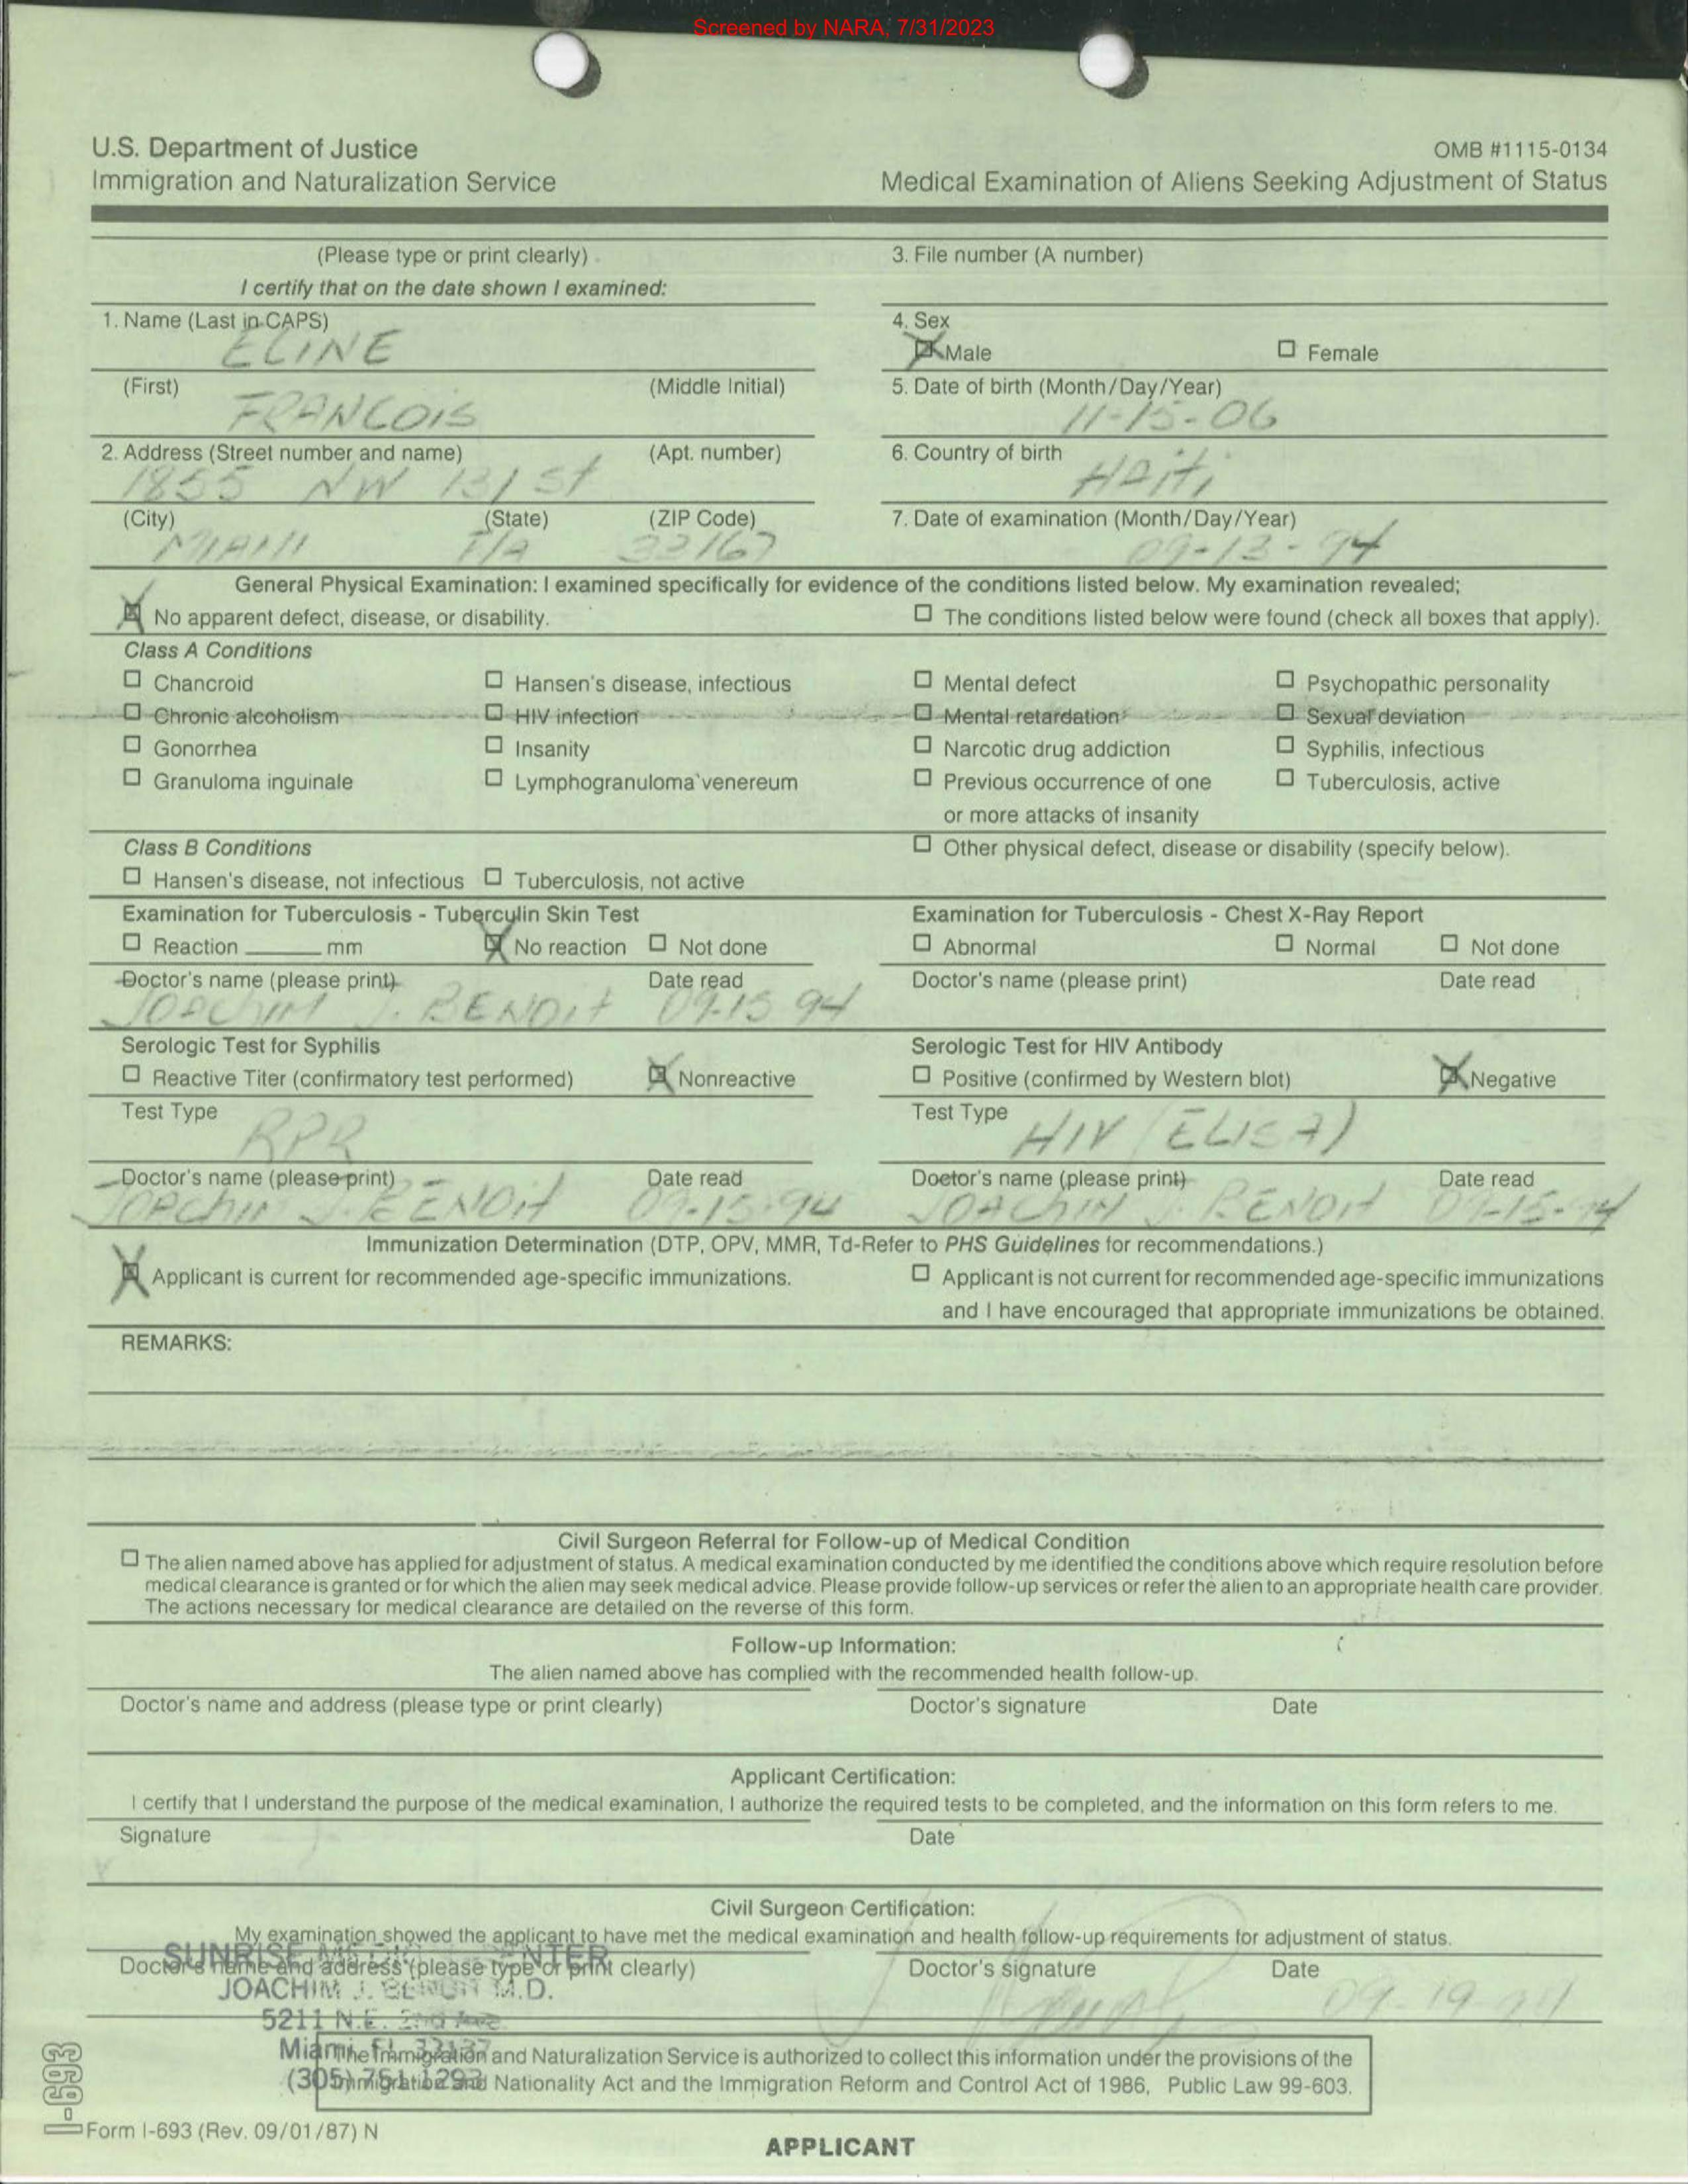 Screened by NARA, 7/31/2023
U.S. Department of Justice
Immigration and Naturalization Service
OMB #1115-0134
Medical Examination of Aliens Seeking Adjustment of Status
(Please type or print clearly)
I certify that on the date shown I examined:
3. File number (A number)
1. Name (Last in CAPS)
ELINE
4. Sex
Male
Female
(First) (Middle Initial)
FRANCOIS
5. Date of birth (Month/Day/Year)
11-15-06
2. Address (Street number and name) (Apt. number)
1855 NW 131 St
6. Country of birth
HAiti
(City) (State) (ZIP Code)
MIAMI F/A 33167
7. Date of examination (Month/Day/Year)
09-13-94
General Physical Examination: I examined specifically for evidence of the conditions listed below. My examination revealed;
No apparent defect, disease, or disability.
The conditions listed below were found (check all boxes that apply).
Class A Conditions
Chancroid Hansen's disease, infectious Mental defect Psychopathic personality
Chronic alcoholism HIV infection Mental retardation Sexual deviation
Gonorrhea Insanity Narcotic drug addiction Syphilis, infectious
Granuloma inguinale Lymphogranuloma venereum Previous occurrence of one Tuberculosis, active
or more attacks of insanity
Class B Conditions
Other physical defect, disease or disability (specify below).
Hansen's disease, not infectious Tuberculosis, not active
Examination for Tuberculosis - Tuberculin Skin Test
Reaction ______ mm No reaction Not done
Examination for Tuberculosis - Chest X-Ray Report
Abnormal Normal Not done
Doctor's name (please print) Date read
JOACHIM J. BENOit 09.15 94
Doctor's name (please print) Date read
Serologic Test for Syphilis
Reactive Titer (confirmatory test performed) Nonreactive
Serologic Test for HIV Antibody
Positive (confirmed by Western blot) Negative
Test Type
RPR
Test Type
HIV (ELISA)
Doctor's name (please print) Date read
JOACHIM J. BENOit 09-15-94
Doctor's name (please print) Date read
JOACHIM J. BENOit 09-15-94
Immunization Determination (DTP, OPV, MMR, Td-Refer to PHS Guidelines for recommendations.)
Applicant is current for recommended age-specific immunizations.
Applicant is not current for recommended age-specific immunizations
and I have encouraged that appropriate immunizations be obtained.
REMARKS:
Civil Surgeon Referral for Follow-up of Medical Condition
The alien named above has applied for adjustment of status. A medical examination conducted by me identified the conditions above which require resolution before
medical clearance is granted or for which the alien may seek medical advice. Please provide follow-up services or refer the alien to an appropriate health care provider.
The actions necessary for medical clearance are detailed on the reverse of this form.
Follow-up Information:
The alien named above has complied with the recommended health follow-up.
Doctor's name and address (please type or print clearly) Doctor's signature Date
Applicant Certification:
I certify that I understand the purpose of the medical examination, I authorize the required tests to be completed, and the information on this form refers to me.
Signature Date
Civil Surgeon Certification:
My examination showed the applicant to have met the medical examination and health follow-up requirements for adjustment of status.
Doctor's name and address (please type or print clearly) Doctor's signature Date
SUNRISE MEDICAL CENTER
JOACHIM J. BENOIT M.D.
5211 N.E. 2nd Ave
Miami, Fl. 33137
(305) 751-1293
09-19-94
The Immigration and Naturalization Service is authorized to collect this information under the provisions of the
Immigration and Nationality Act and the Immigration Reform and Control Act of 1986, Public Law 99-603.
I-693
Form I-693 (Rev. 09/01/87) N
APPLICANT